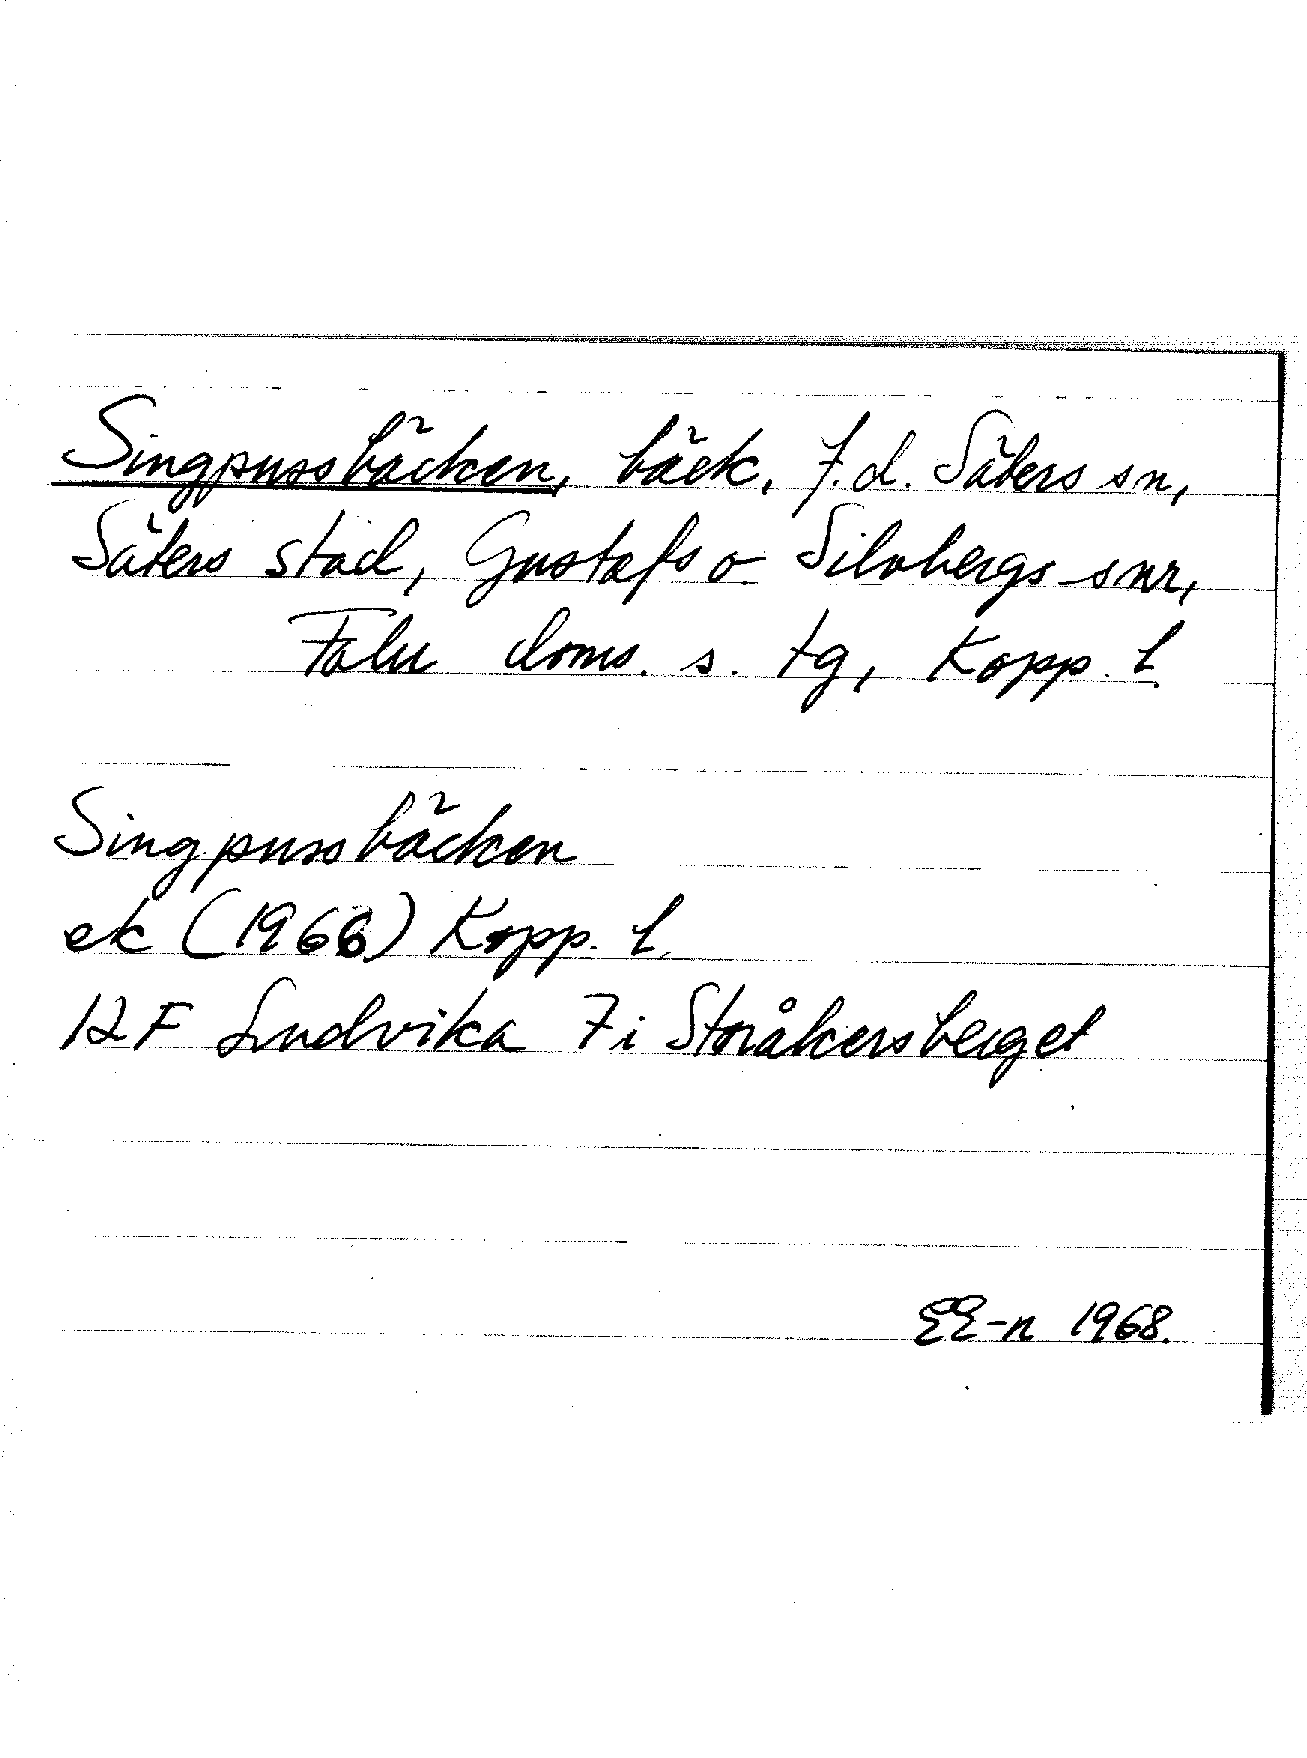 Singpussbäcken, bäck, f.d. Säters sn,
Säters stad, Gustafs o Silvbergs snr,
Falu doms. s. tg, Kopp. l.
Singpussbäcken
ek (1966) Kopp. l.
12 F Ludvika 7 i Storåkersberget
EE-n 1968.